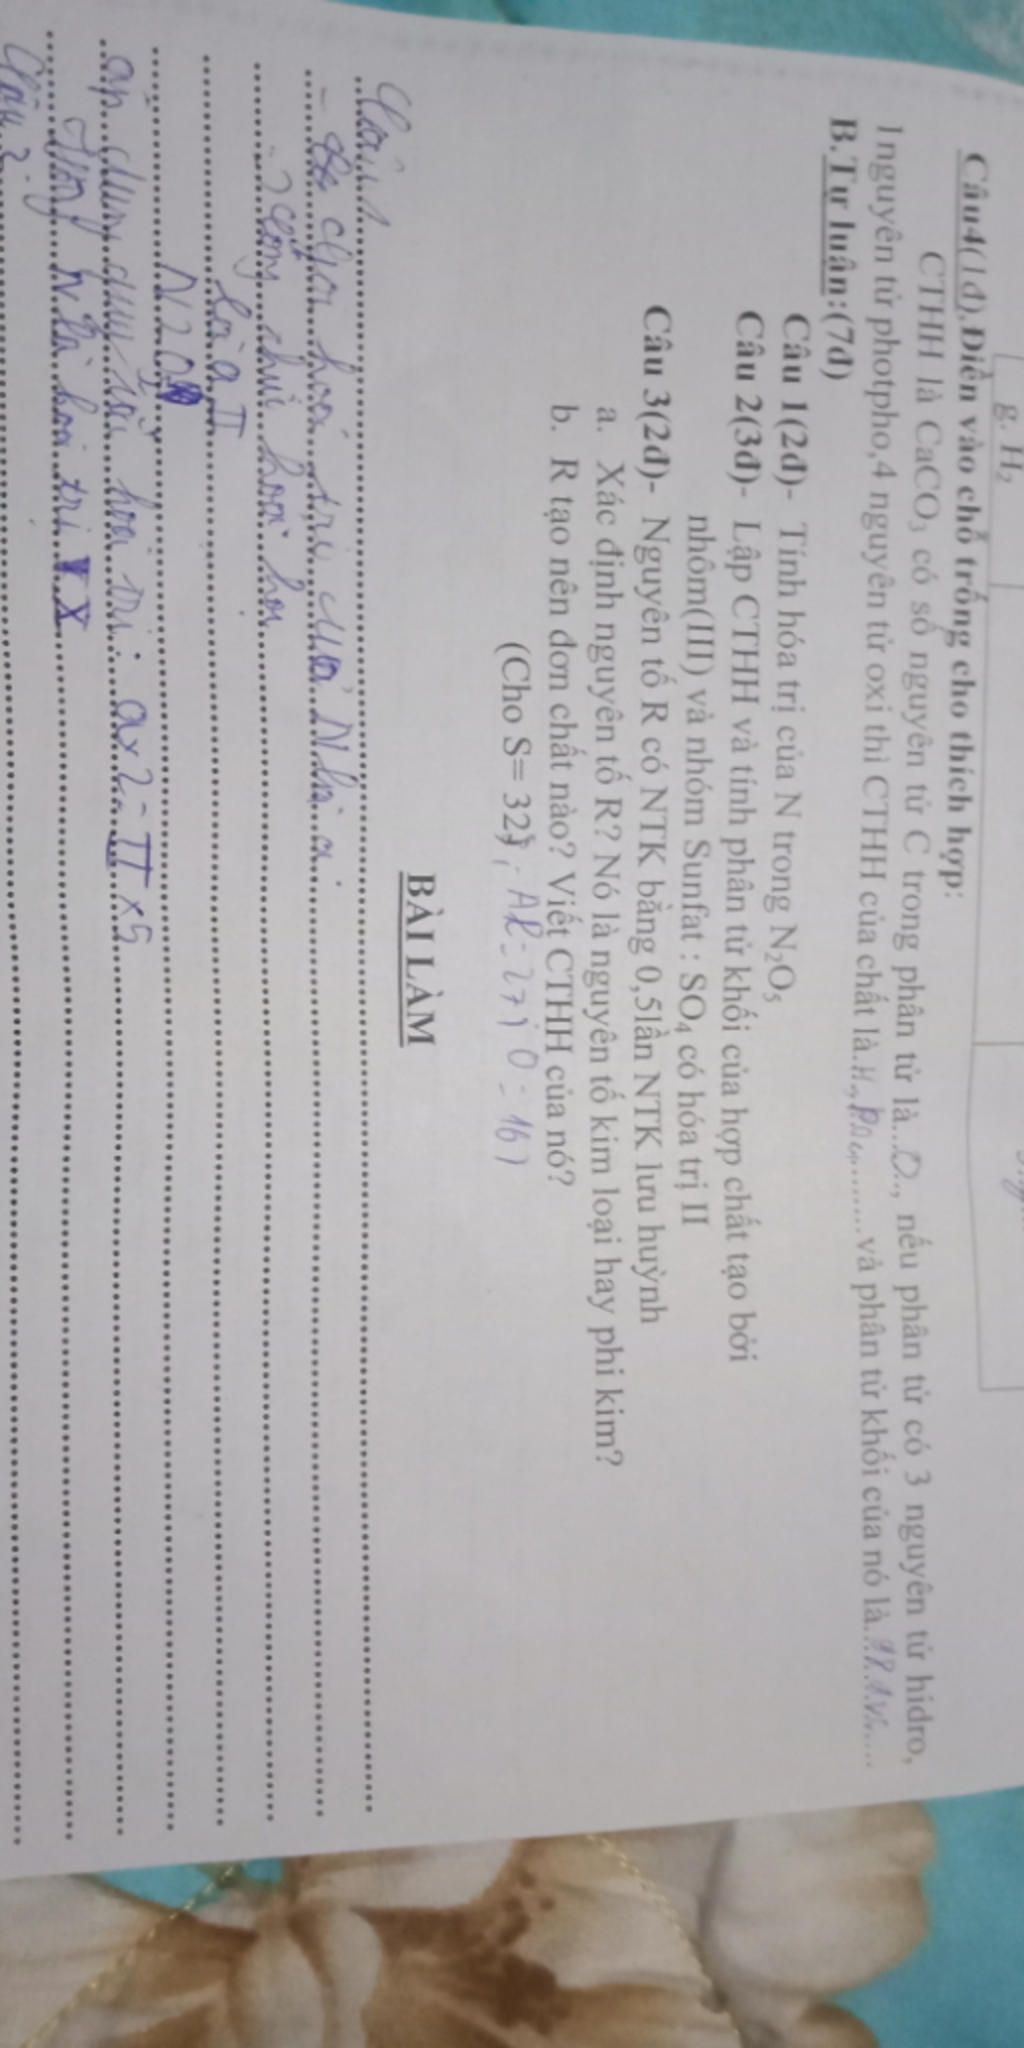 g. H₂
Câu4(1đ).Điền vào chỗ trống cho thích hợp:
CTHH là CaCO₃ có số nguyên tử C trong phân tử là..., nếu phân tử có 3 nguyên tử hidro,
1nguyên tử photpho,4 nguyên tử oxi thì CTHH của chất là...........và phân tử khối của nó là.........
B.Tự luận:(7đ)
Câu 1(2đ)- Tính hóa trị của N trong N₂O₅
Câu 2(3đ)- Lập CTHH và tính phân tử khối của hợp chất tạo bởi
nhôm(III) và nhóm Sunfat : SO₄ có hóa trị II
Câu 3(2đ)- Nguyên tố R có NTK bằng 0,5lần NTK lưu huỳnh
a. Xác định nguyên tố R? Nó là nguyên tố kim loại hay phi kim?
b. R tạo nên đơn chất nào? Viết CTHH của nó?
(Cho S= 32; Al = 27; O = 16)
BÀI LÀM
Câu 1
- chọn hoá trị của N là a
công hoá
là a II
N2O5
áp dụng quy tắc hoá trị : a x 2 = II x 5
N là hoá trị
Câu 2